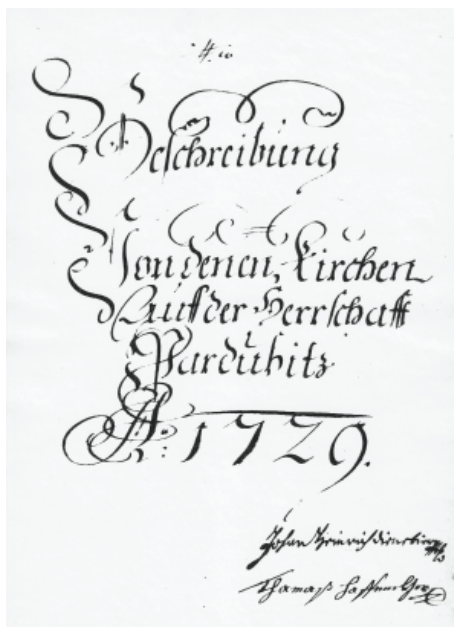 Beschreibung
Von denen Kirchen
Auff der Herrschafft
Pardubitz
A: 1729.
Johan Heinrich
Thamaß